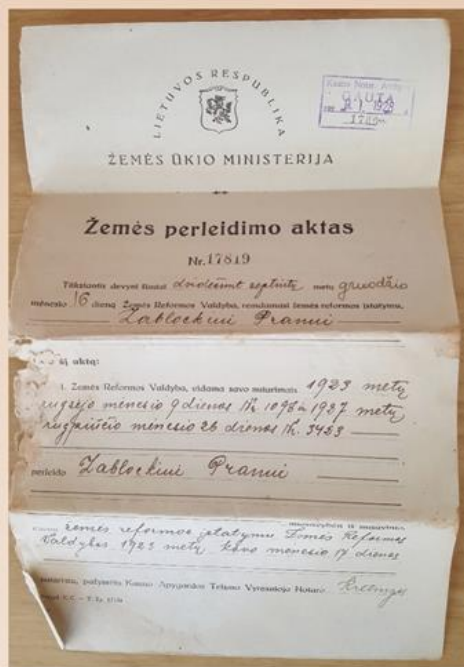 LIETUVOS RESPUBLIKA
ŽEMĖS ŪKIO MINISTERIJA
Kauno Notar.
GAUTA
1928
Žemės perleidimo aktas
Nr. 17819
Tūkstantis devyni šimtai dvidešimt septintų metų gruodžio
mėnesio 16 dieną Žemės Reformos Valdyba, remdamasi žemės reformos įstatymu,
Zablockiui Pranui
šį aktą:
1. Žemės Reformos Valdyba, eidama savo nutarimais 1923 metų
rugsėjo mėnesio 9 dienos Nr. ir 1927 metų
rugpiučio mėnesio 26 dienos Nr. 3423
perleido Zablockiui Pranui
žemės reformos įstatymu Žemės Reformos
Valdybos 1923 metų kovo mėnesio 17 dienos
nutarimu, Kauno Apygardos Teismo Vyresniojo Notaro